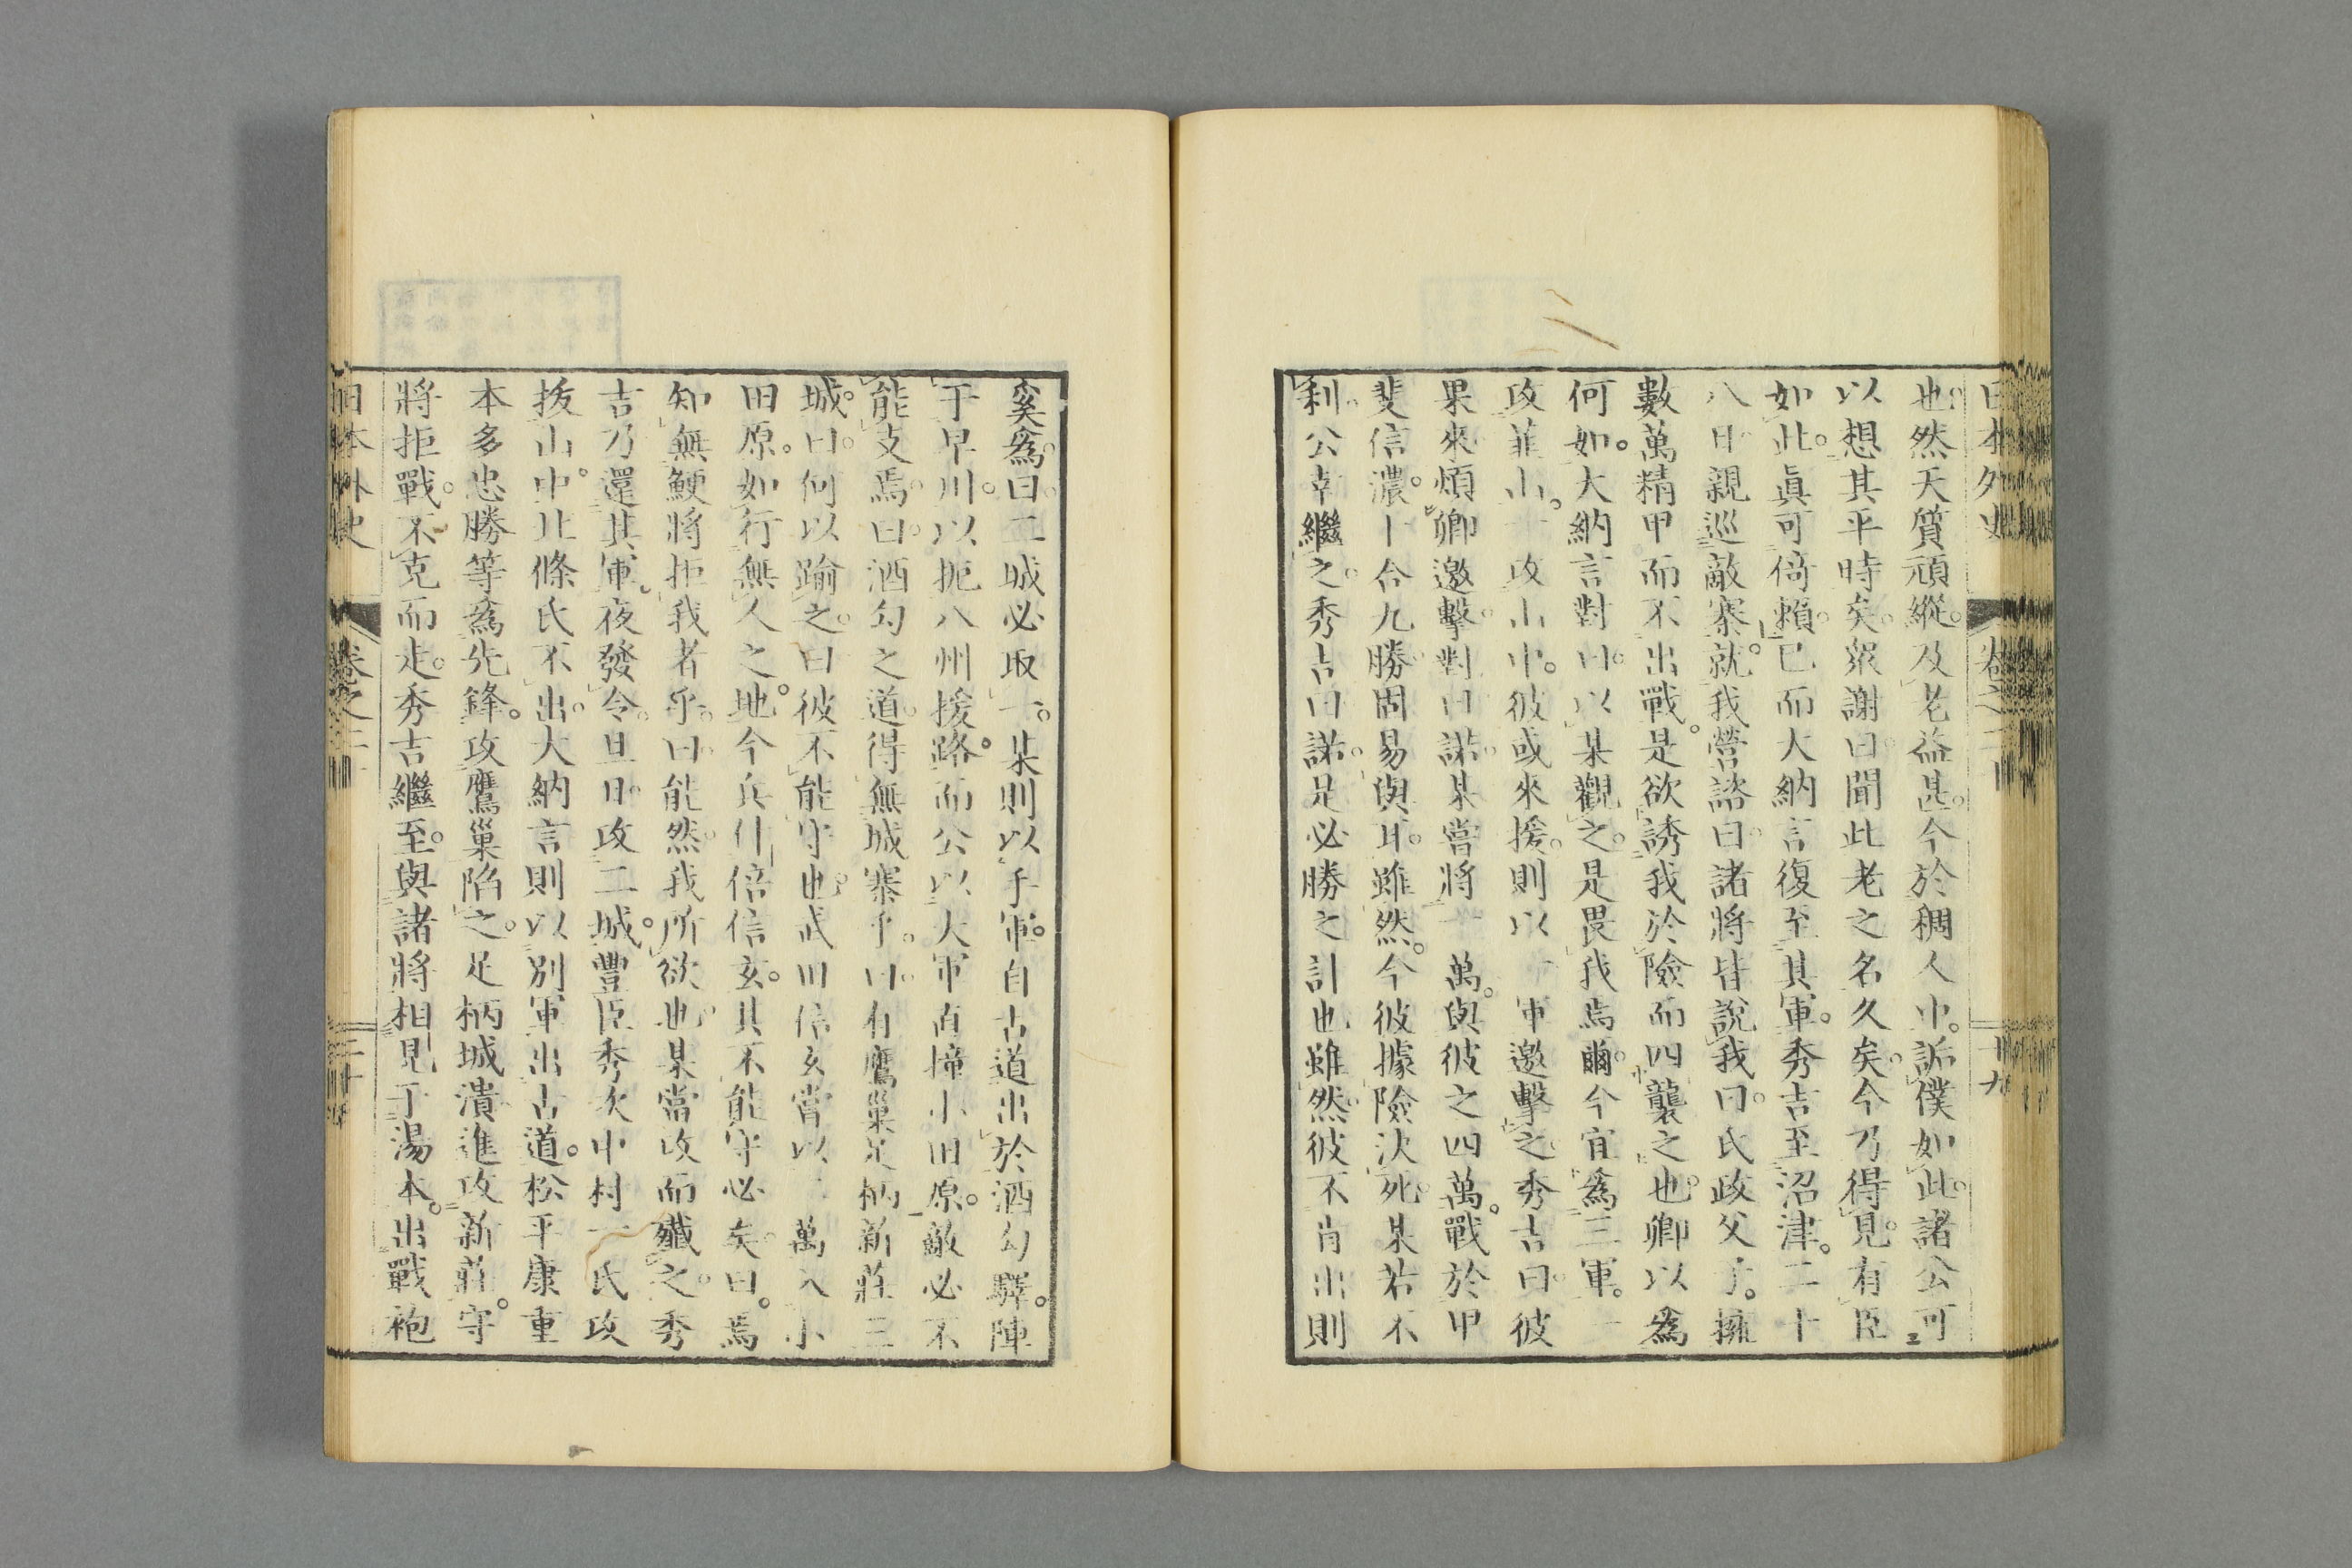 日本外史 卷之二十 十九
也。然天質頑縱。及老益甚。今於稠人中。詬僕如此。諸公可
以想其平時矣。衆謝曰。聞此老之名久矣。今乃得見。有臣
如此。眞可倚賴。已而大納言復至其軍。秀吉至沼津。二十
八日。親巡敵寨。就我營諮曰。諸將皆說我曰。氏政父子。擁
數萬精甲。而不出戰。是欲誘我於險而四襲之也。卿以爲
何如。大納言對曰。以某觀之。是畏我焉爾。今宜爲三軍。一
攻韮山。一攻山中。彼或來援。則以一軍邀擊之。秀吉曰。彼
果來。煩卿邀擊。對曰。諾。某嘗將一萬。與彼之四萬。戰於甲
斐信濃。十合九勝。固易與耳。雖然。今彼據險決死。某若不
利。公幸繼之。秀吉曰。諾。是必勝之計也。雖然。彼不肯出則
奚爲。曰。二城必取一。某則以手軍。自古道出於酒匂驛。陣
于早川。以扼八州援路。而公以大軍直擣小田原。敵必不
能支焉。曰。酒匂之道。得無城寨乎。曰。有鷹巢足柄新莊三
城。曰。何以踰之。曰。彼不能守也。武田信玄嘗以二萬入小
田原。如行無人之地。今兵什倍信玄。其不能守必矣。曰。焉
知無鯁將拒我者乎。曰。能然。我所欲也。某當攻而殲之。秀
吉乃還其軍。夜發令。旦日。攻二城。豐臣秀次中村一氏攻
拔山中。北條氏不出。大納言則以別軍出古道。松平康重
本多忠勝等爲先鋒。攻鷹巢陷之。足柄城潰。進攻新莊。守
將拒戰。不克而走。秀吉繼至。與諸將相見于湯本。出戰袍
日本外史 卷之二十 二十